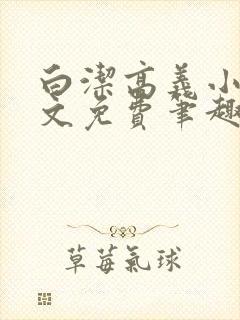 白潔高義小
文免費筆趣
草莓氣球